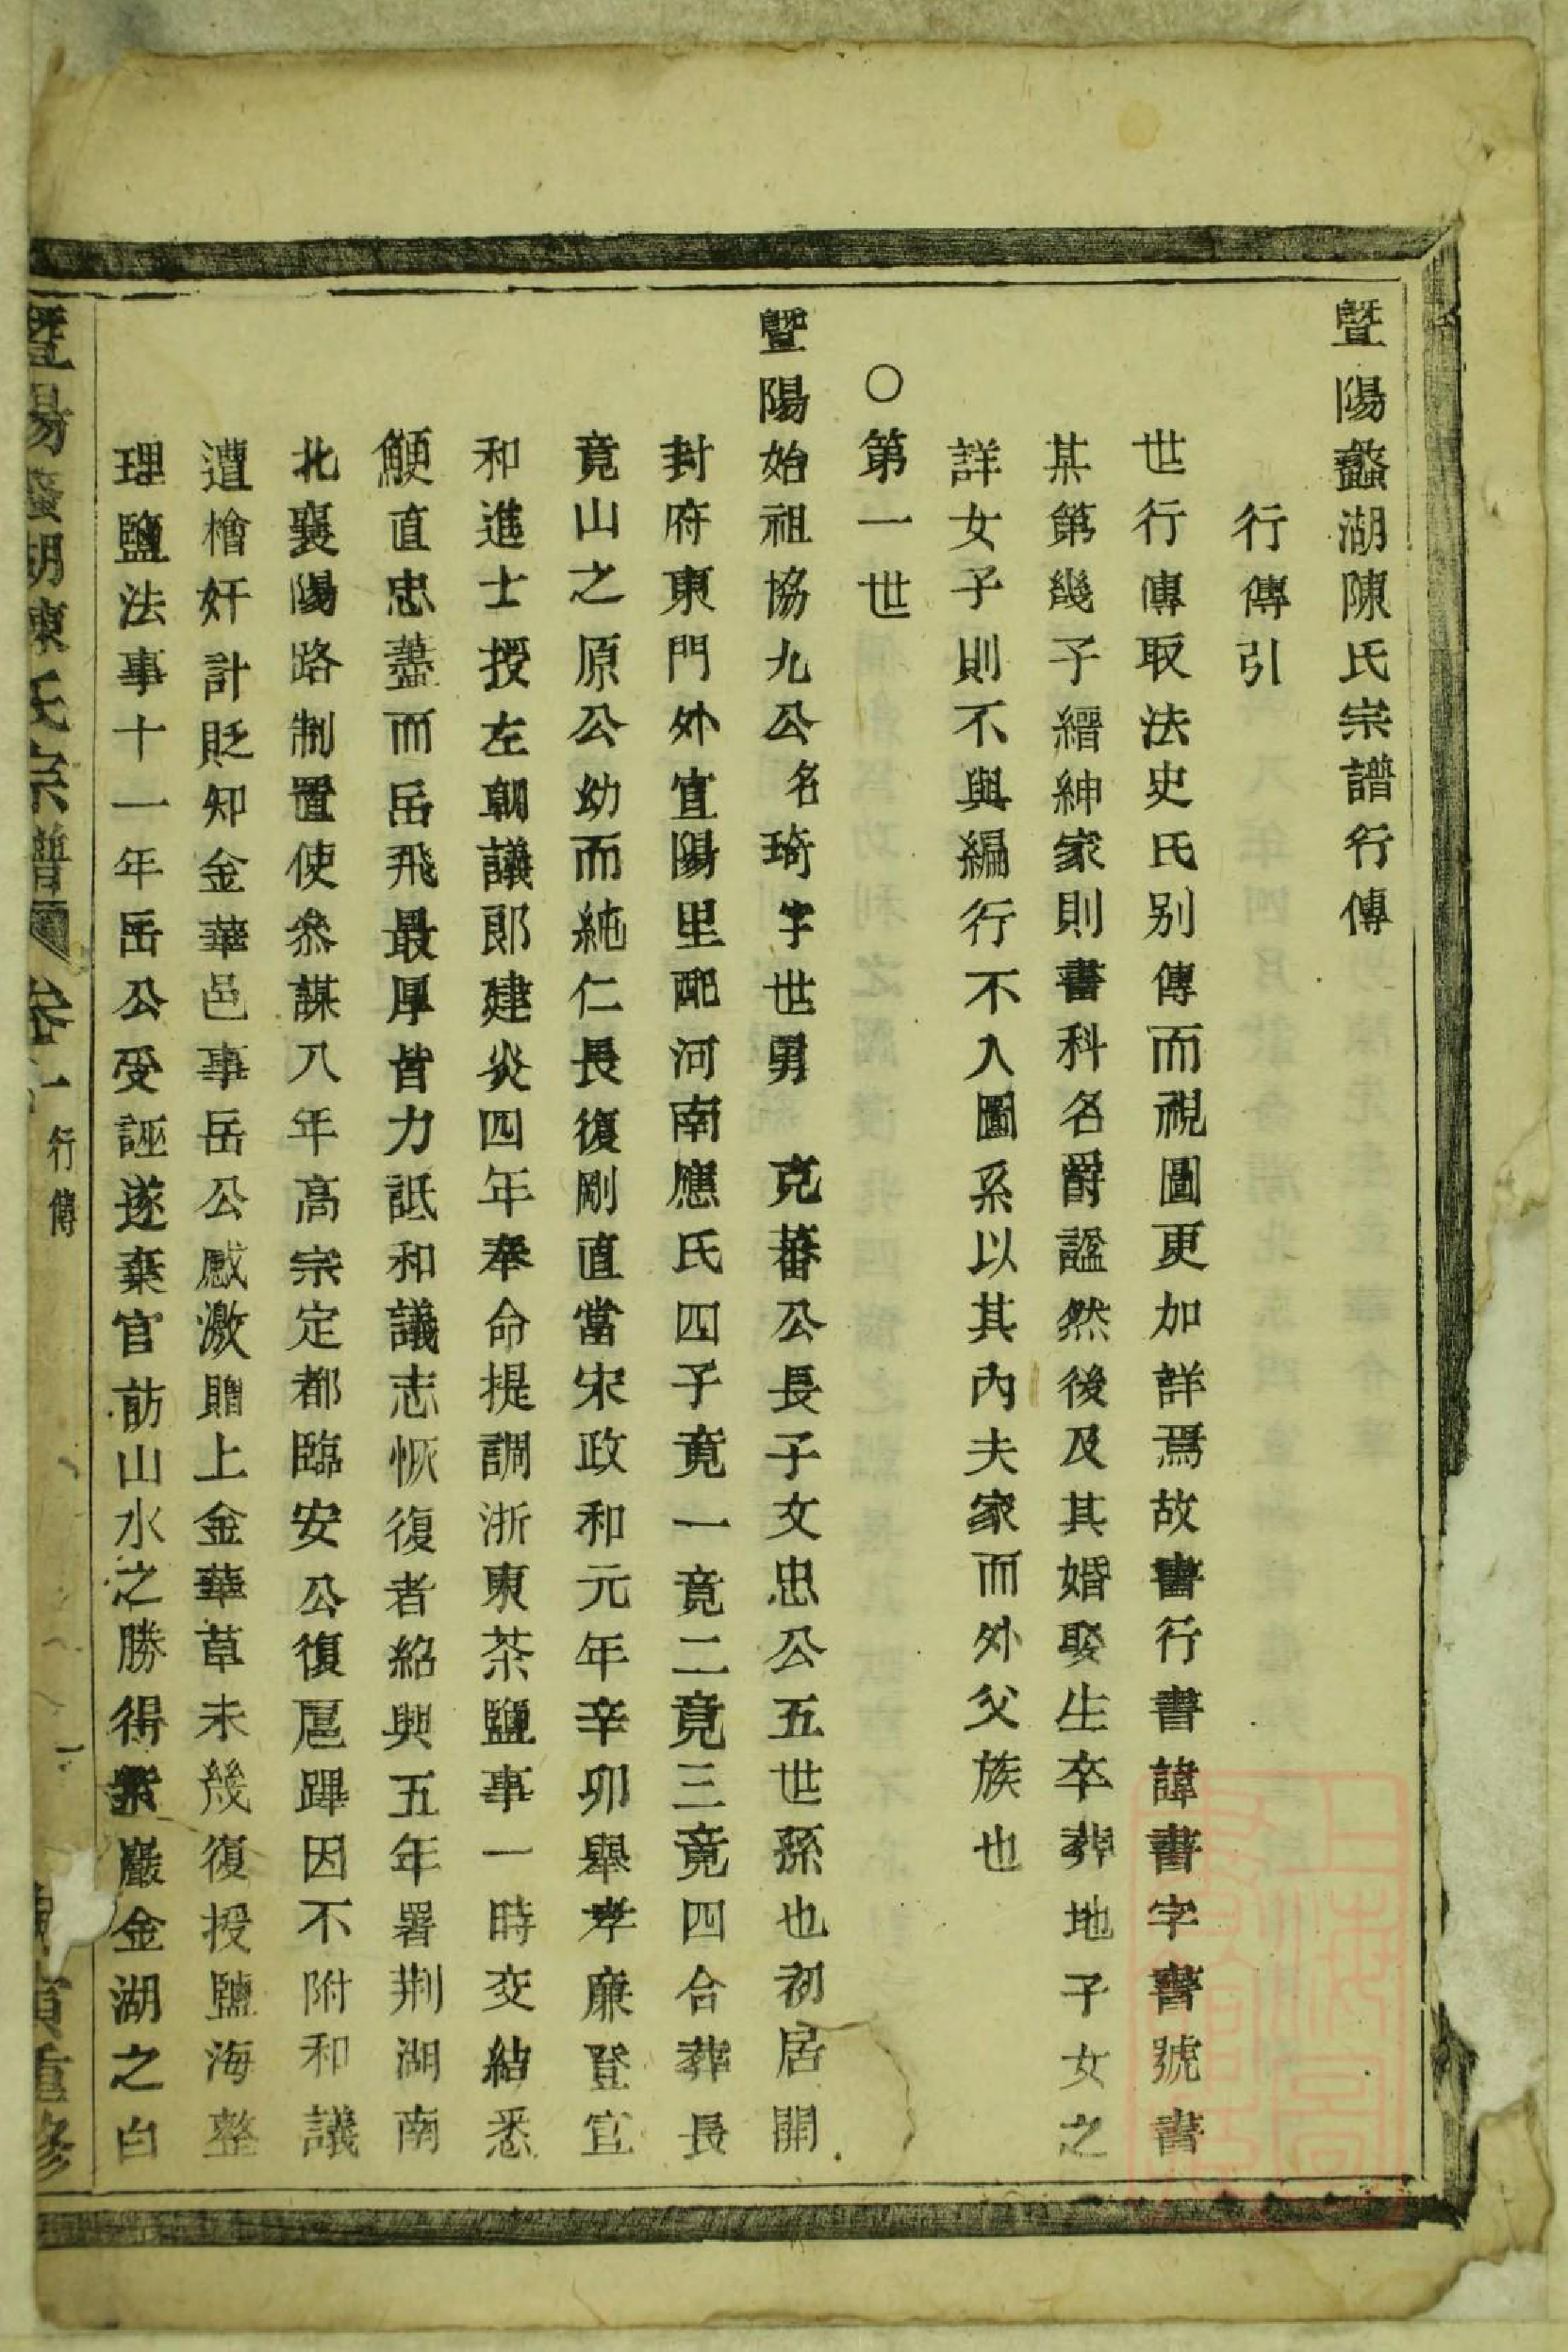 暨陽蠡湖陳氏宗譜行傳
行傳引
世行傳取法史氏别傳而視圖更加詳焉故書行書諱書字書號書
某第幾子縉紳家則書科名爵諡然後及其婚娶生卒葬地子女之
詳女子則不與編行不入圖系以其內夫家而外父族也
○第一世
暨陽始祖協九公名琦字世男 克蕃公長子文忠公五世孫也初居開
封府東門外宜陽里配河南應氏四子竟一竟二竟三竟四合葬長
竟山之原公幼而純仁長復剛直當宋政和元年辛卯舉孝廉登宣
和進士授左朝議郎建炎四年奉命提調浙東茶鹽事一時交結悉
鯁直忠藎而岳飛最厚皆力詆和議志恢復者紹興五年署荆湖南
北襄陽路制置使叅謀八年高宗定都臨安公復扈蹕因不附和議
遭檜奸計貶知金華邑事岳公感激贈上金華草未幾復授鹽海整
理鹽法事十一年岳公受誣遂棄官訪山水之勝得紫巖金湖之白
暨陽蠡湖陳氏宗譜 卷一 行傳 重修